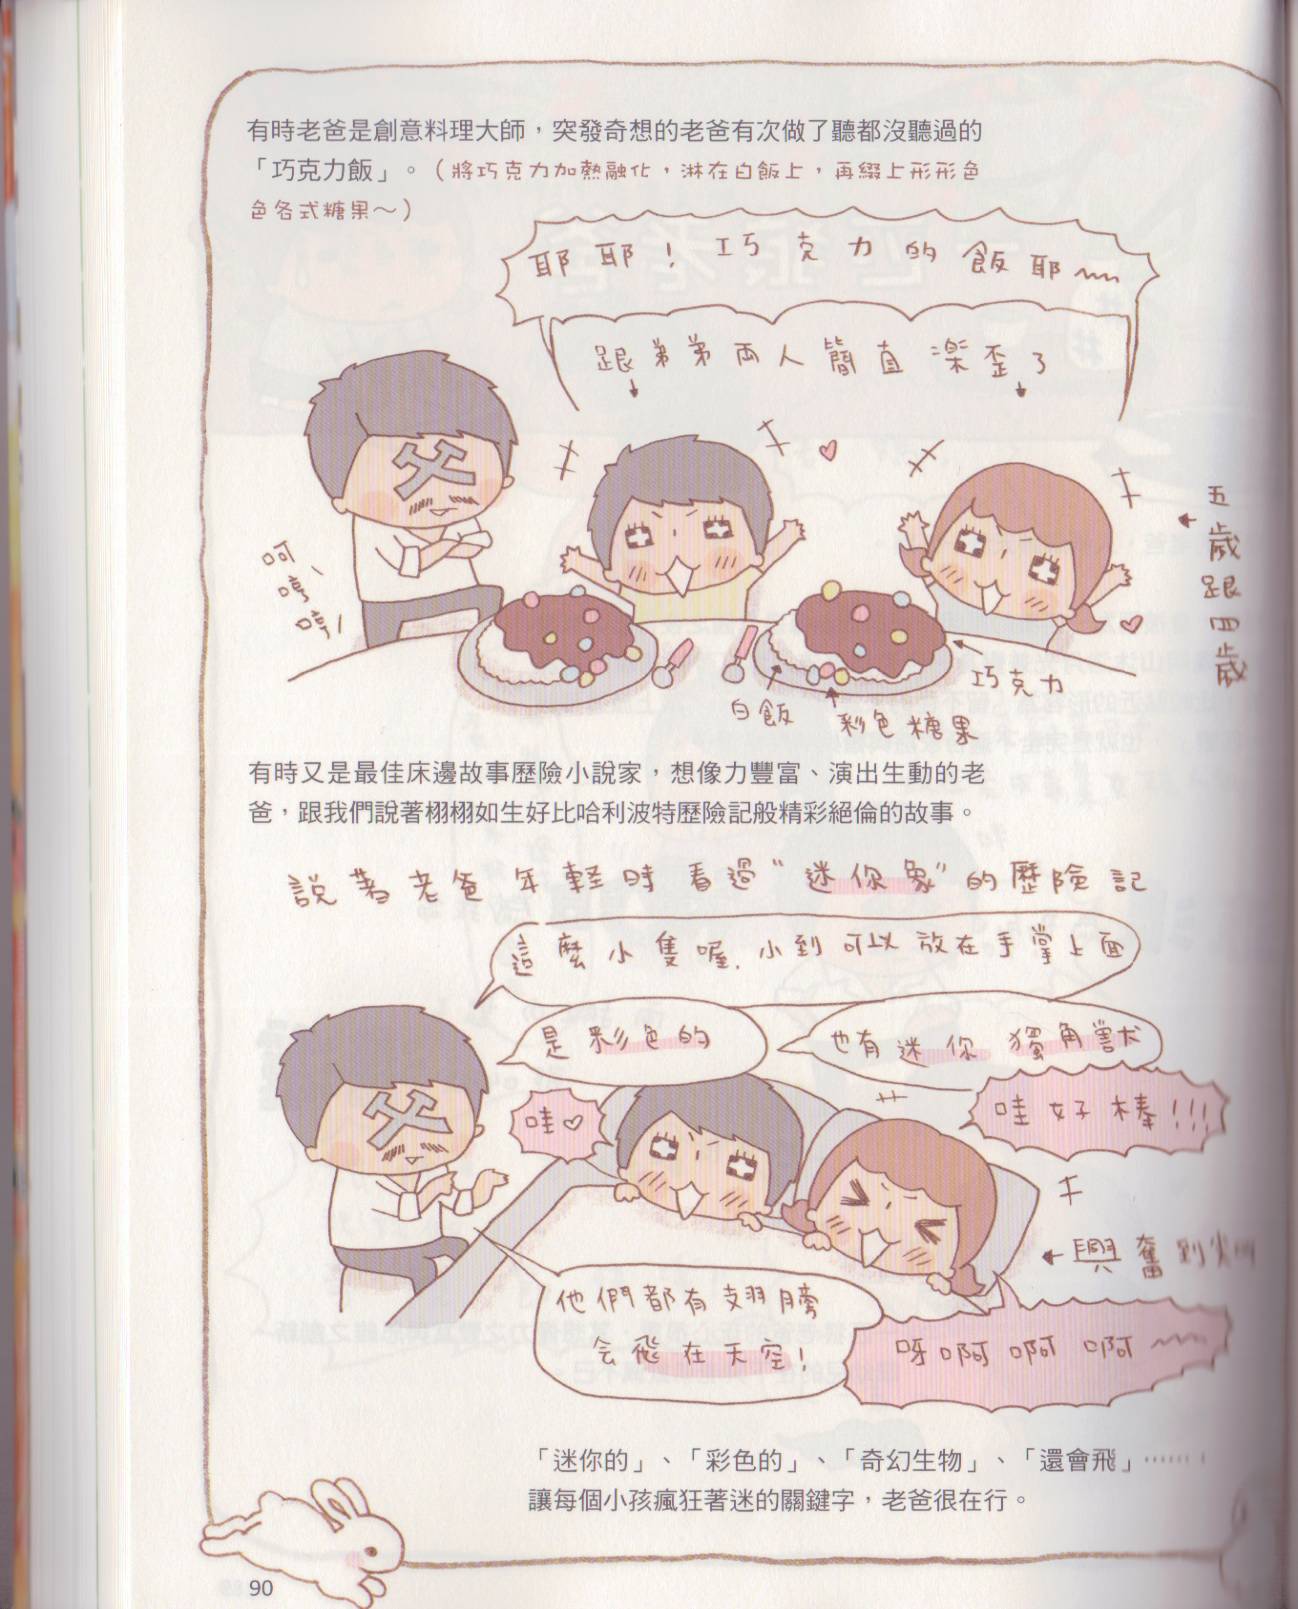 有時老爸是創意料理大師，突發奇想的老爸有次做了聽都沒聽過的
「巧克力飯」。（將巧克力加熱融化，淋在白飯上，再綴上形形色
色各式糖果～）
耶耶！巧克力的飯耶～
跟弟弟兩人簡直樂歪了
呵、
哼
哼！
五歲跟四歲
巧克力
白飯
彩色糖果
有時又是最佳床邊故事歷險小說家，想像力豐富、演出生動的老
爸，跟我們說著栩栩如生好比哈利波特歷險記般精彩絕倫的故事。
說著老爸年輕時看過"迷你象"的歷險記
這麼小隻喔，小到可以放在手掌上面
是彩色的
也有迷你獨角獸
哇♡
哇好棒!!!
興奮到尖叫
他們都有翅膀
会飛在天空！
呀啊啊啊～
「迷你的」、「彩色的」、「奇幻生物」、「還會飛」……
讓每個小孩瘋狂著迷的關鍵字，老爸很在行。
90